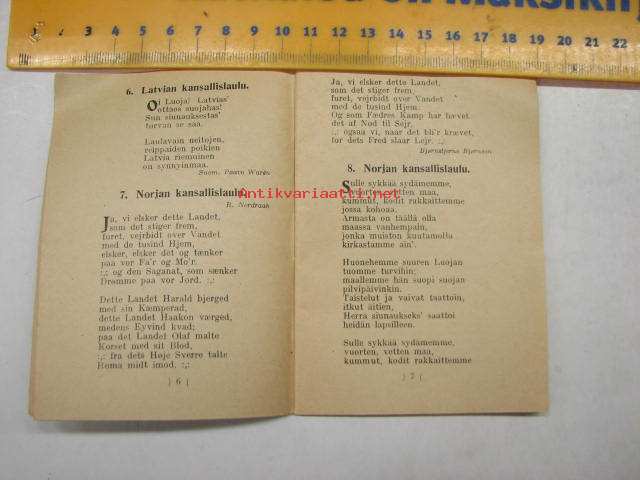 1 2 3 4 5 6 7 8 9 10 11 12 13 14 15 16 17 18 19 20 21 22
6. Latvian kansallislaulu.
Oi Luoja! Latvias'
ottaos suojahas!
Sun siunauksestas'
turvan se saa.
Laulavain neitojen,
reippaiden poikien
Latvia riemuinen
on synnyinmaa.
Suom. Paavo Warén
7. Norjan kansallislaulu.
R. Nordraak
Ja, vi elsker dette Landet,
som det stiger frem,
furet, vejrbidt over Vandet
med de tusind Hjem,
elsker, elsker det og tænker
paa vor Fa'r og Mo'r
:,: og den Saganat, som sænker
Drømme paa vor Jord. :,:
Dette Landet Harald bjerged
med sin Kæmperad,
dette Landet Haakon værged,
medens Eyvind kvad;
paa det Landet Olaf malte
Korset med sit Blod,
:,: fra dets Høje Sverre talte
Roma midt imod. :,:
) 6 (
Ja, vi elsker dette Landet,
som det stiger frem,
furet, vejrbidt over Vandet
med de tusind Hjem,
Og som Fædres Kamp har hævet
det af Nød til Sejr,
:,: ogsaa vi, naar det bli'r krævet,
for dets Fred slaar Lejr. :,:
Bjørnstjerne Bjørnson
8. Norjan kansallislaulu.
Sulle sykkää sydämemme,
vuorten, vetten maa,
kummut, kodit rakkaittemme
jossa kohoaa.
Armasta on täällä olla
maassa vanhempain,
jonka muiston kuutamolla
kirkastamme ain'.
Huonehemme suuren Luojan
tuomme turvihin;
maallemme hän suopi suojan
pilvipäivinkin.
Taistelut ja vaivat taattoin,
itkut äitien,
Herra siunaukseks' saattoi
heidän lapsilleen.
Sulle sykkää sydämemme,
vuorten, vetten maa,
kummut, kodit rakkaittemme
) 7 (
Antikvariaatti.net